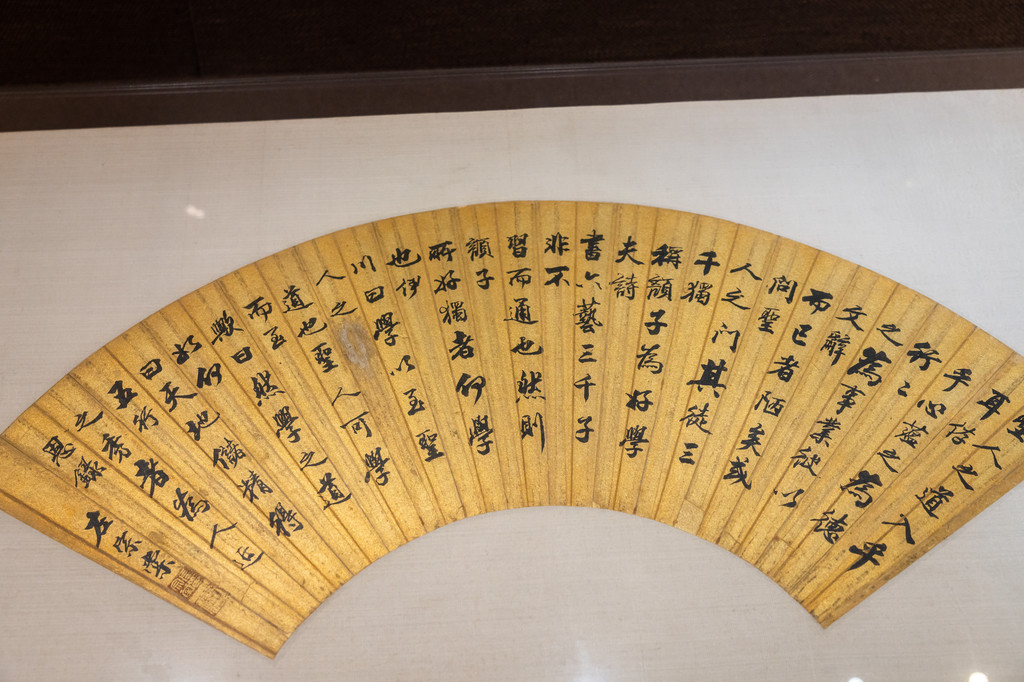 聖人之道入乎
耳存
乎心蘊之為德
行ミ
之為事業彼以
文辭
而已者陋矣或
問聖
人之門其徒三
千獨
稱顏子為好學
夫詩
書六藝三千子
非不
習而通也然則
顏子
所好獨者何學
也伊
川曰學以至聖
人之
道也聖人可學
而至
歟曰然學之道
如何
曰天地儲精得
五行
之秀者為人近
思錄
左宗棠